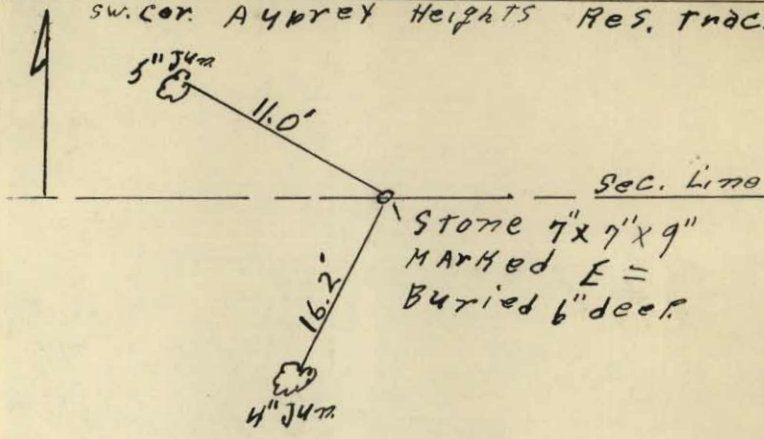 SW. Cor. Auprey Heights Res. Trac.
5" Jun.
11.0'
Sec. Line
Stone 7" x 7" x 9"
Marked E =
Buried 6" deep.
16.2'
4" Jun.